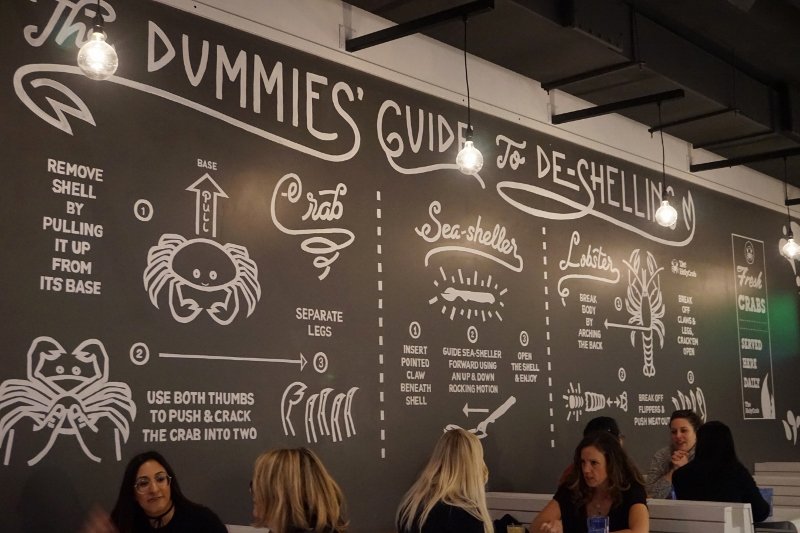 The DUMMIES' GUIDE To DE-SHELLING
REMOVE
SHELL
BY
PULLING
IT UP
FROM
ITS BASE
1
BASE
PULL
Crab
SEPARATE
LEGS
2
3
USE BOTH THUMBS
TO PUSH & CRACK
THE CRAB INTO TWO
Sea-sheller
1
INSERT
POINTED
CLAW
BENEATH
SHELL
2
GUIDE SEA-SHELLER
FORWARD USING
AN UP & DOWN
ROCKING MOTION
3
OPEN
THE SHELL
& ENJOY
Lobster
The
HolyCrab
BREAK
BODY
BY
ARCHING
THE BACK
BREAK
OFF
CLAWS &
LEGS,
CRACK'EM
OPEN
BREAK OFF
FLIPPERS &
PUSH MEAT OUT
Fresh
CRABS
SERVED
HERE
DAILY
The
HolyCrab